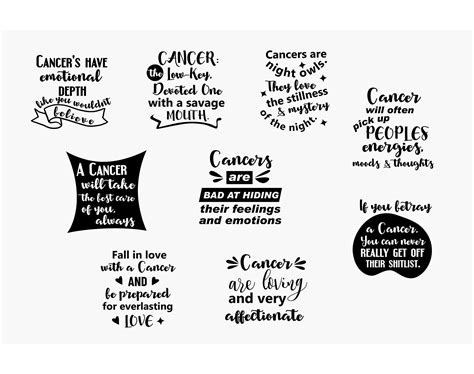 CANCER'S HAVE
emotional
DEPTH
like you wouldn't
believe
CANCER:
the LOW-KEY,
DEVOTED ONE
WITH A SAVAGE
MOUTH.
Cancers are
night owls.
They love
the stillness
& mystery
of the night.
Cancer
will often
pick up
PEOPLES
energies,
moods & thoughts
A CANCER
will take
the best care
of you,
always
Cancers
are
BAD AT HIDING
their feelings
and emotions
If you betray
a Cancer.
You can never
REALLY GET OFF
THEIR SHITLIST.
Fall in love
with a Cancer
AND
be prepared
for everlasting
LOVE
Cancer
are loving
and very
affectionate